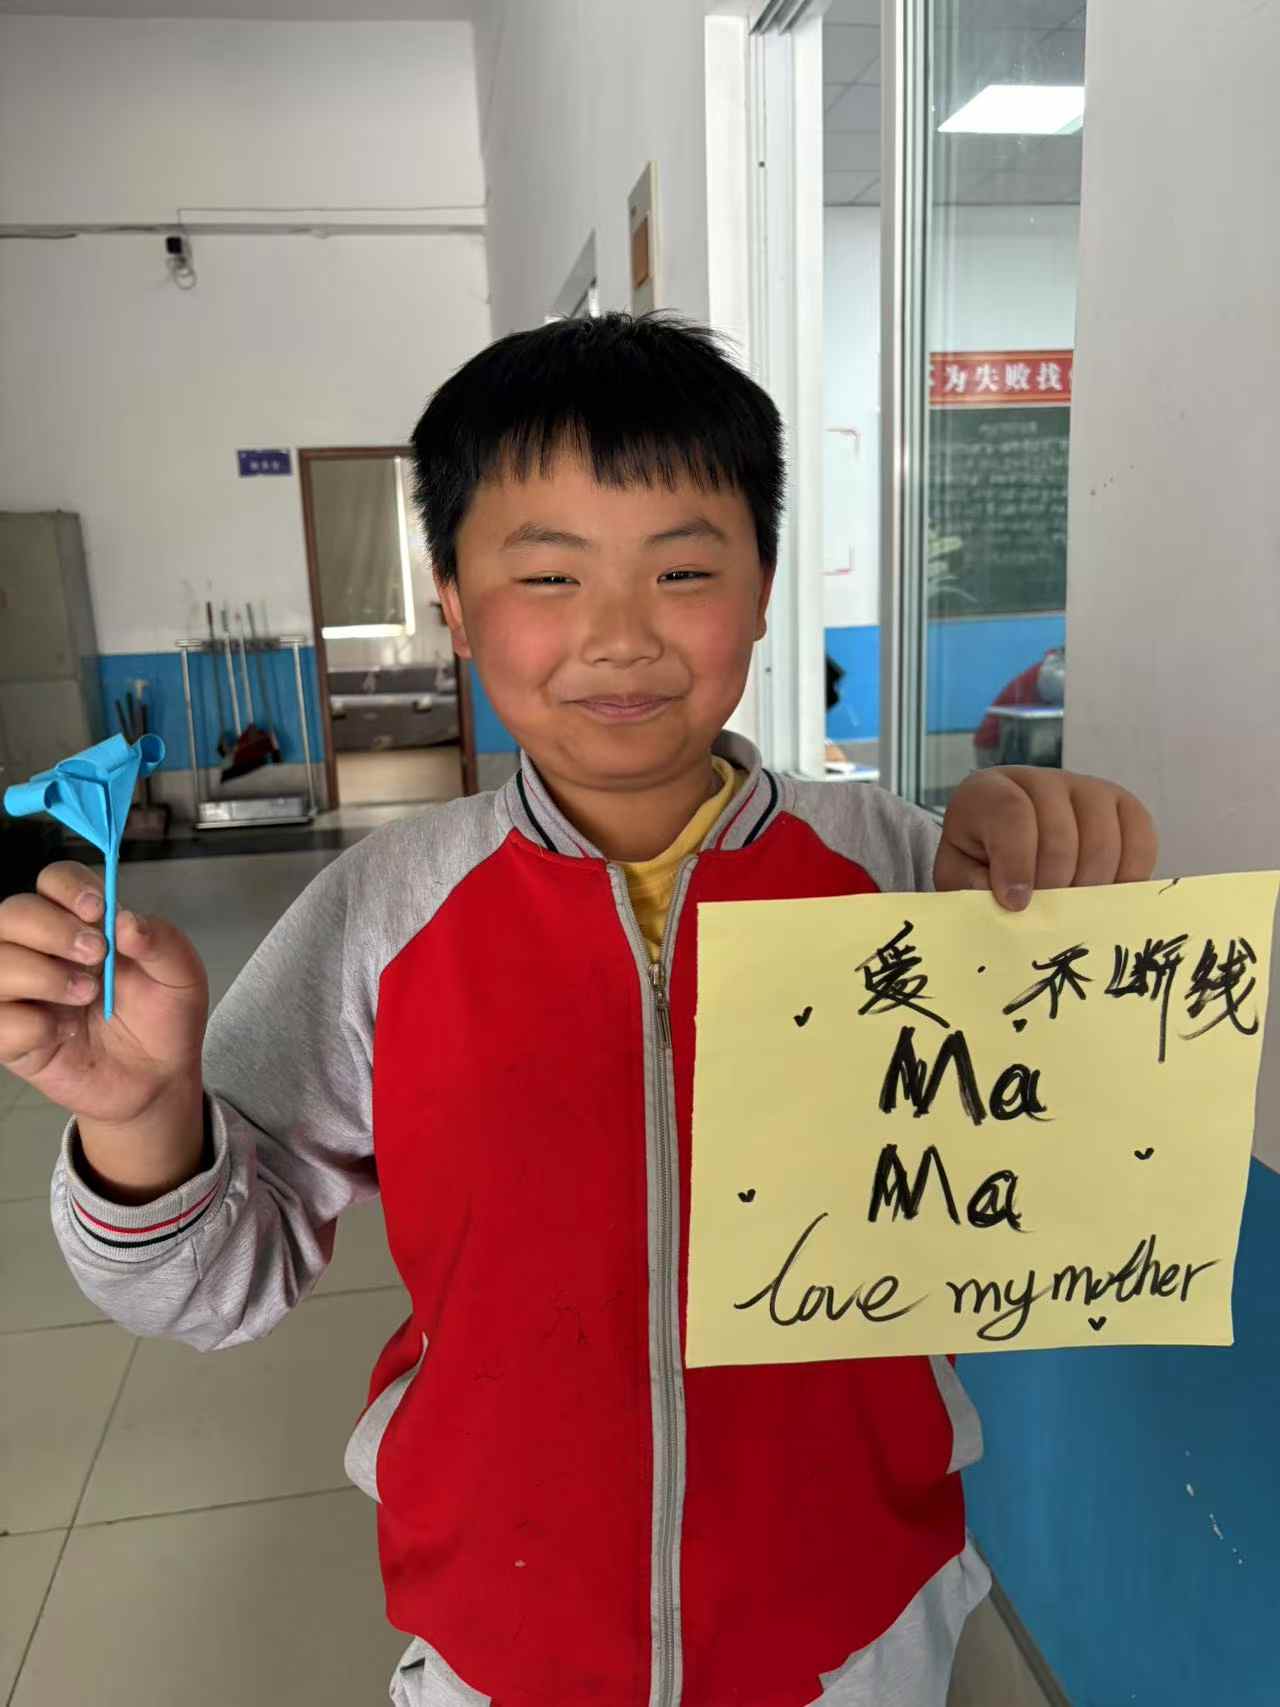 为失败找
爱·不断线
Ma
Ma
love my mother